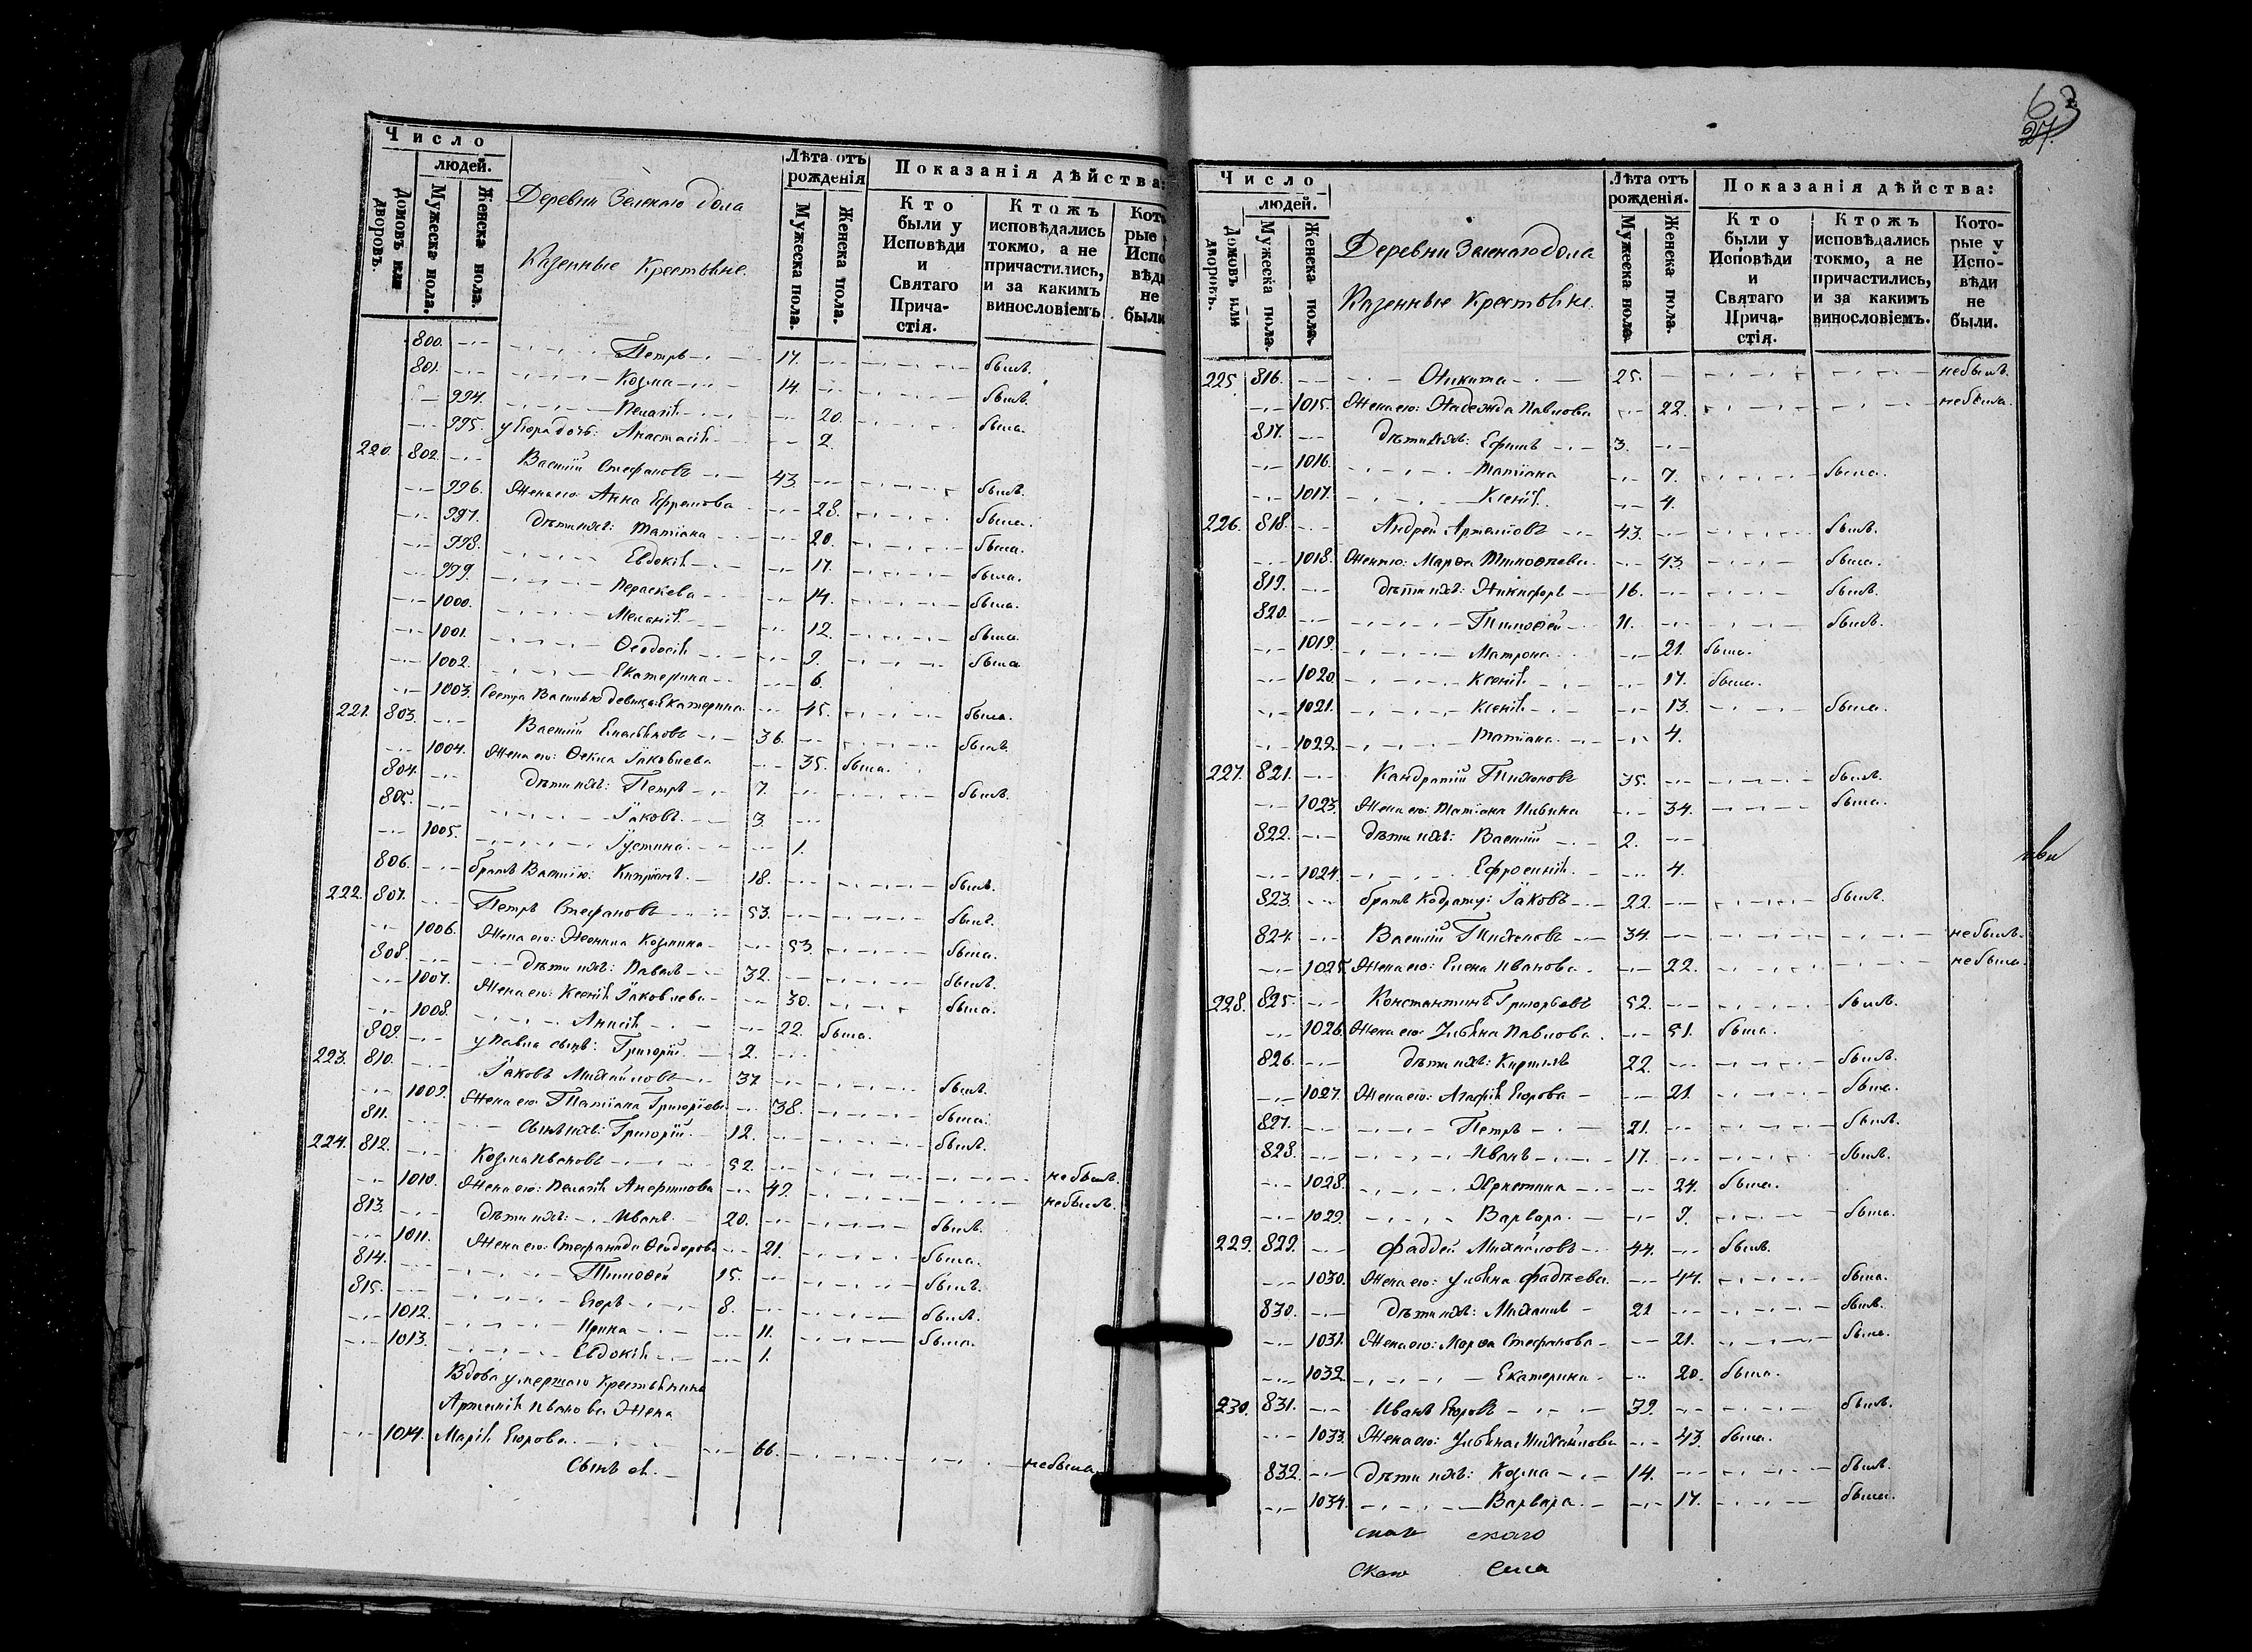 Число
людей.
Домовъ или дворовъ.
Мужеска пола.
Женска пола.
Деревни Зеленаго дола
Казенные Крестьяне.
Лѣта отъ рожденія
Мужеска пола.
Женска пола.
Показанія дѣйства:
Кто были у Исповѣди и Святаго Причастія.
Ктожъ исповѣдались токмо, а не причастились, и за какимъ винословіемъ
Которые Исповѣди не были
800. Петръ 17. былъ.
801. Козма 14. былъ.
994. Пелагія 20. была.
995. у Егора дочь: Анастасія 2.
220. 802. Василій Стефановъ 43. былъ.
996. Жена его: Анна Ефремова 28. была.
997. Дѣти ихъ: Татіана 20. была.
998. Евдокія 17. была.
999. Параскева 14. была.
1000. Меланія 12. была.
1001. Ѳеодосія 9. была
1002. Екатерина 6.
1003. Сестра Василью девица: Екатерина 45. была.
221. 803. Василій 36. былъ.
1004. Жена его: Ѳекла Іаковлева 35. была.
804. Дѣти ихъ: Петръ 7. былъ.
805. Іаковъ 3.
1005. Іустина 1.
806. братъ Василію: Кипріанъ 18. былъ.
222. 807. Петръ Стефановъ 53. былъ.
1006. Жена его: Козмина 53. была.
808. Дѣти ихъ: Павелъ 32. былъ.
1007. Жена его: Ксенія Іаковлева 30. была.
1008. Анисія 22. была.
809. у Павла сынъ: Григорій 2.
223. 810. Іаковъ Михайловъ 37 былъ.
1009. Жена его: Татіана Григоріева 38. была.
811. Сынъ ихъ: Григорій 12. былъ.
224. 812. Козма Ивановъ 52. небылъ.
1010. Жена его: Пелагія 49. небылъ.
813. Дѣти ихъ: Иванъ 20. былъ.
1011. Жена его: Стефанида Ѳеодорова 21. была.
814. Тимофей 15. былъ.
815. Егоръ 8. былъ.
1012. Ирина 11. была.
1013. Евдокія 1.
Вдова умершаго Крестьянина
Иванова Жена
1014. Марія Егорова 66. небыла.
Сынъ ея.
63
27.
Число
людей.
Домовъ или дворовъ.
Мужеска пола.
Женска пола.
Деревни Зеленаго дола
Казенные Крестьяне.
Лѣта отъ рожденія.
Мужеска пола.
Женска пола.
Показанія дѣйства:
Кто были у Исповѣди и Святаго Причастія.
Ктожъ исповѣдались токмо, а не причастились, и за какимъ винословіемъ.
Которые у Исповѣди не были.
225. 816. Никита 25. небылъ.
1015. Жена его: Надежда Павлова 22. небыла.
817. Дѣти ихъ: Ефимъ 3.
1016. Татіана 7. была.
1017. Ксенія 4.
226. 818. Андрей 43. былъ.
1018. Жена его: Марфа Тимофеева 43 была.
819. Дѣти ихъ: Никифоръ 16. былъ.
820. Тимофей 11. былъ.
1019. Матрона 21. была.
1020. Ксенія 17. была.
1021. Ксенія 13. была.
1022. Татіана 4.
227. 821. Кандратій Тихоновъ 35. былъ.
1023. Жена его: Татіана 34. была.
822. Дѣти ихъ: Василій 2.
1024. Ефросинія 4.
823. братъ Іаковъ 22. былъ.
824. Василій Тихановъ 34. небылъ.
1025. Жена его: Елена Иванова 22. небыла.
228. 825. Константинъ Григорьевъ 52. былъ.
1026. Жена его: Ульяна Павлова 51. была.
826. Дѣти ихъ: Кириллъ 22. былъ.
1027. Жена его: Агафія Егорова 21. была.
827. Петръ 21. былъ.
828. Иванъ 17. былъ.
1028. Христина 24. была.
1029. Варвара 9. была.
229. 829. Фаддей Михайловъ 44. былъ.
1030. Жена его: Ульяна Фадѣева 44. была.
830. Дѣти ихъ: Михаилъ 21 былъ.
1031. Жена его: Марфа Стефанова 21. была.
1032. Екатерина 20. была.
230. 831. Иванъ Егоровъ 39. былъ.
1033. Жена его: Ульяна Михайлова 43. была.
832. Дѣти ихъ: Козма 14. былъ.
1034. Варвара 17. была.
скаго
скаго села